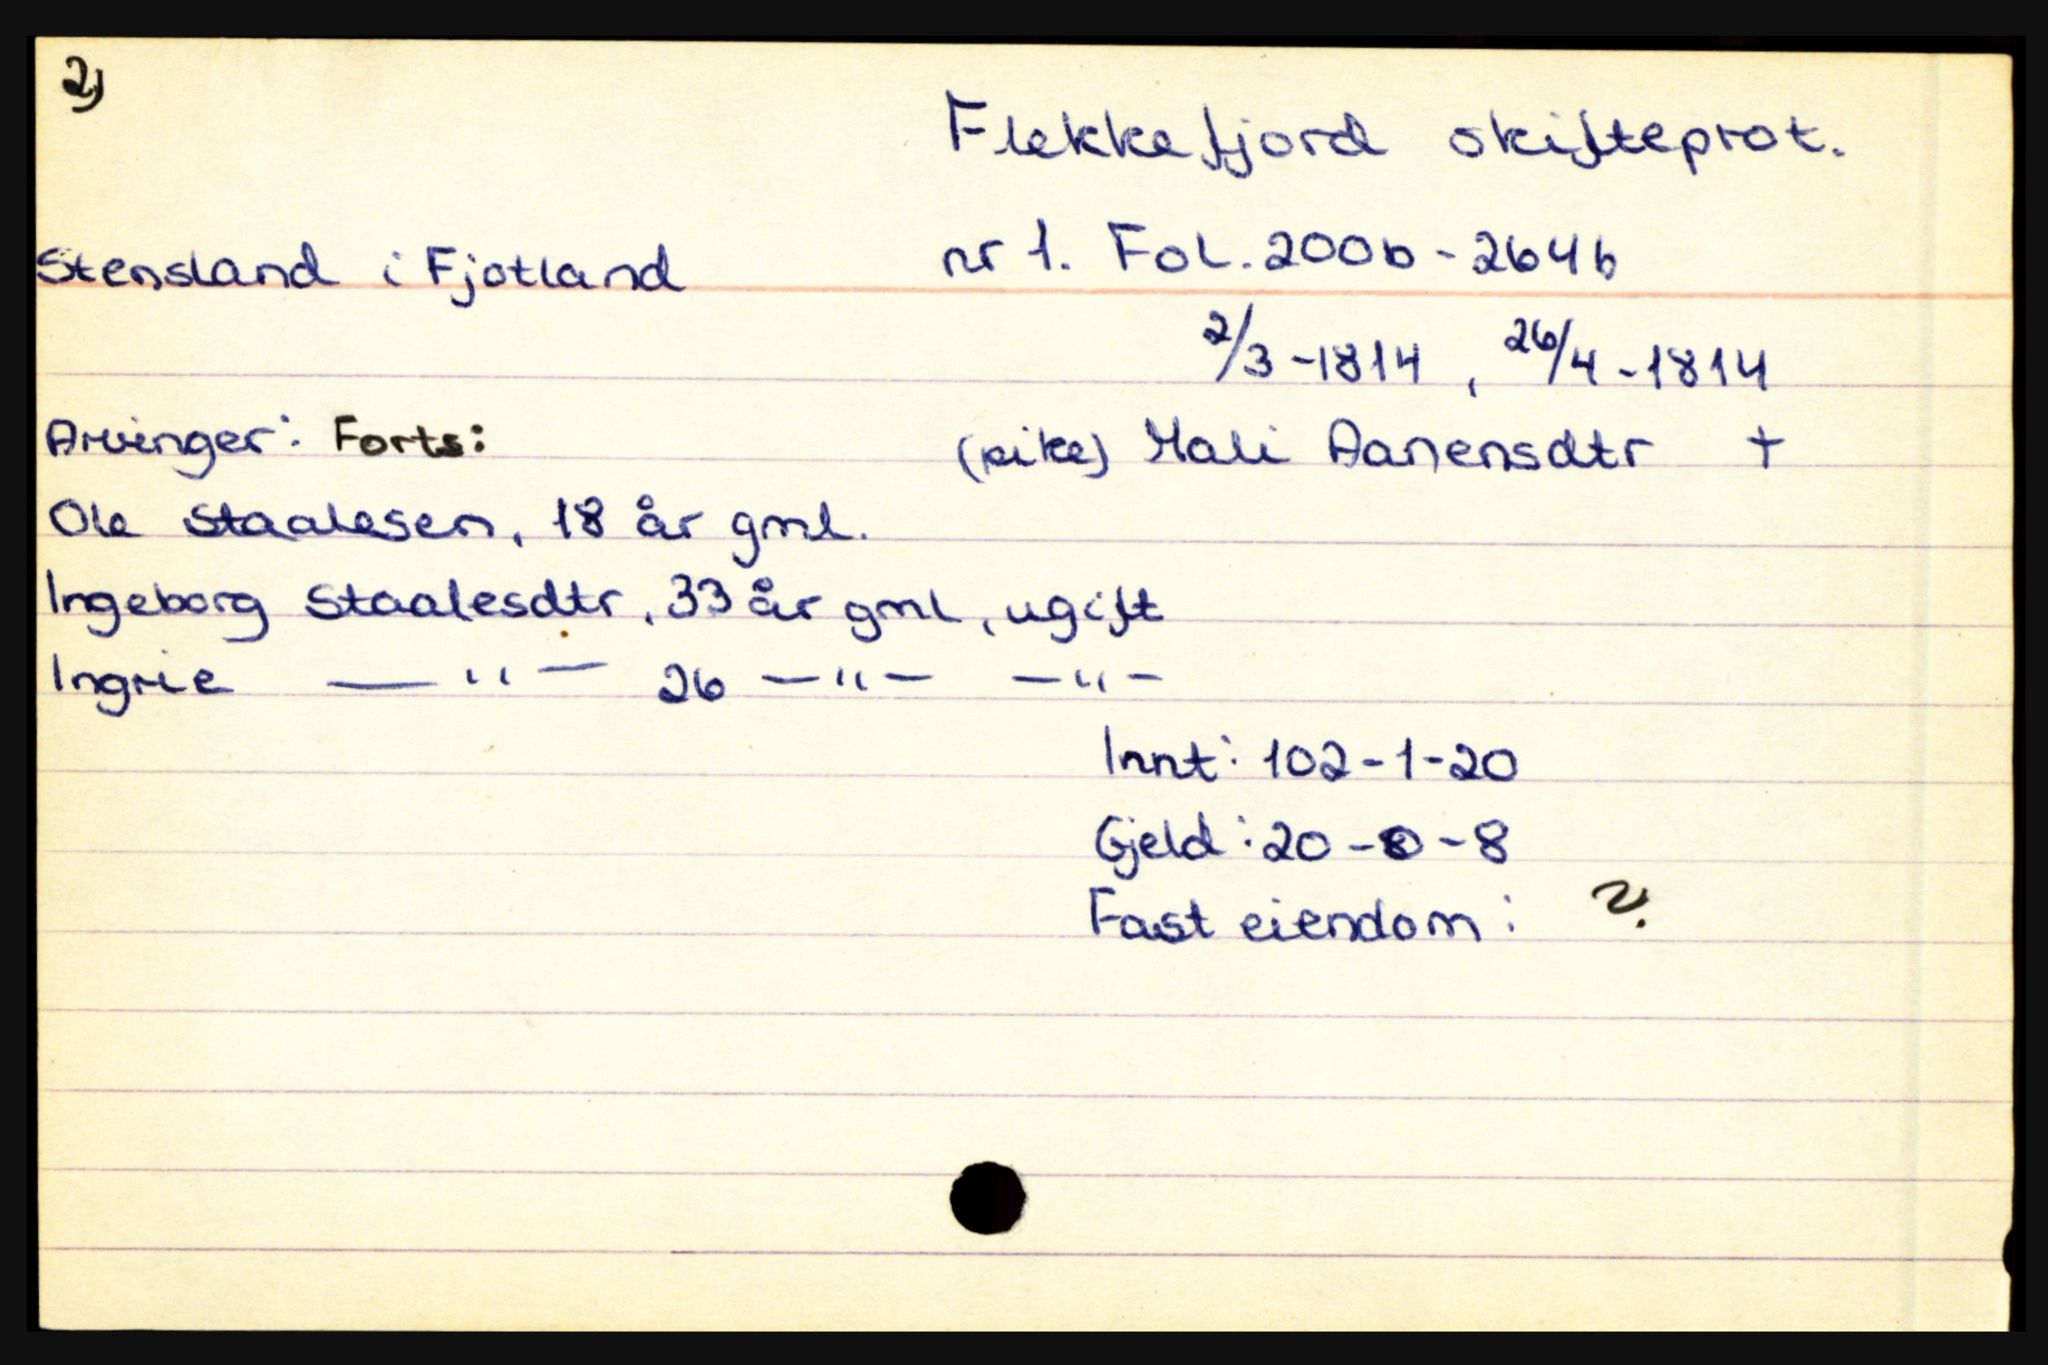 2)
Flekkefjord skifteprot.
Stensland i Fjotland nr 1. Fol. 200b - 264b
2/3 -1814, 26/4 -1814
Arvinger: Forts: (pike) Mali Aanensdtr †
Ole Staalesen, 18 år gml.
Ingeborg Staalesdtr, 33 år gml, ugift
Ingrie — " — 26 — " — — " —
Innt: 102-1-20
Gjeld: 20-0-8
Fast eiendom: ?